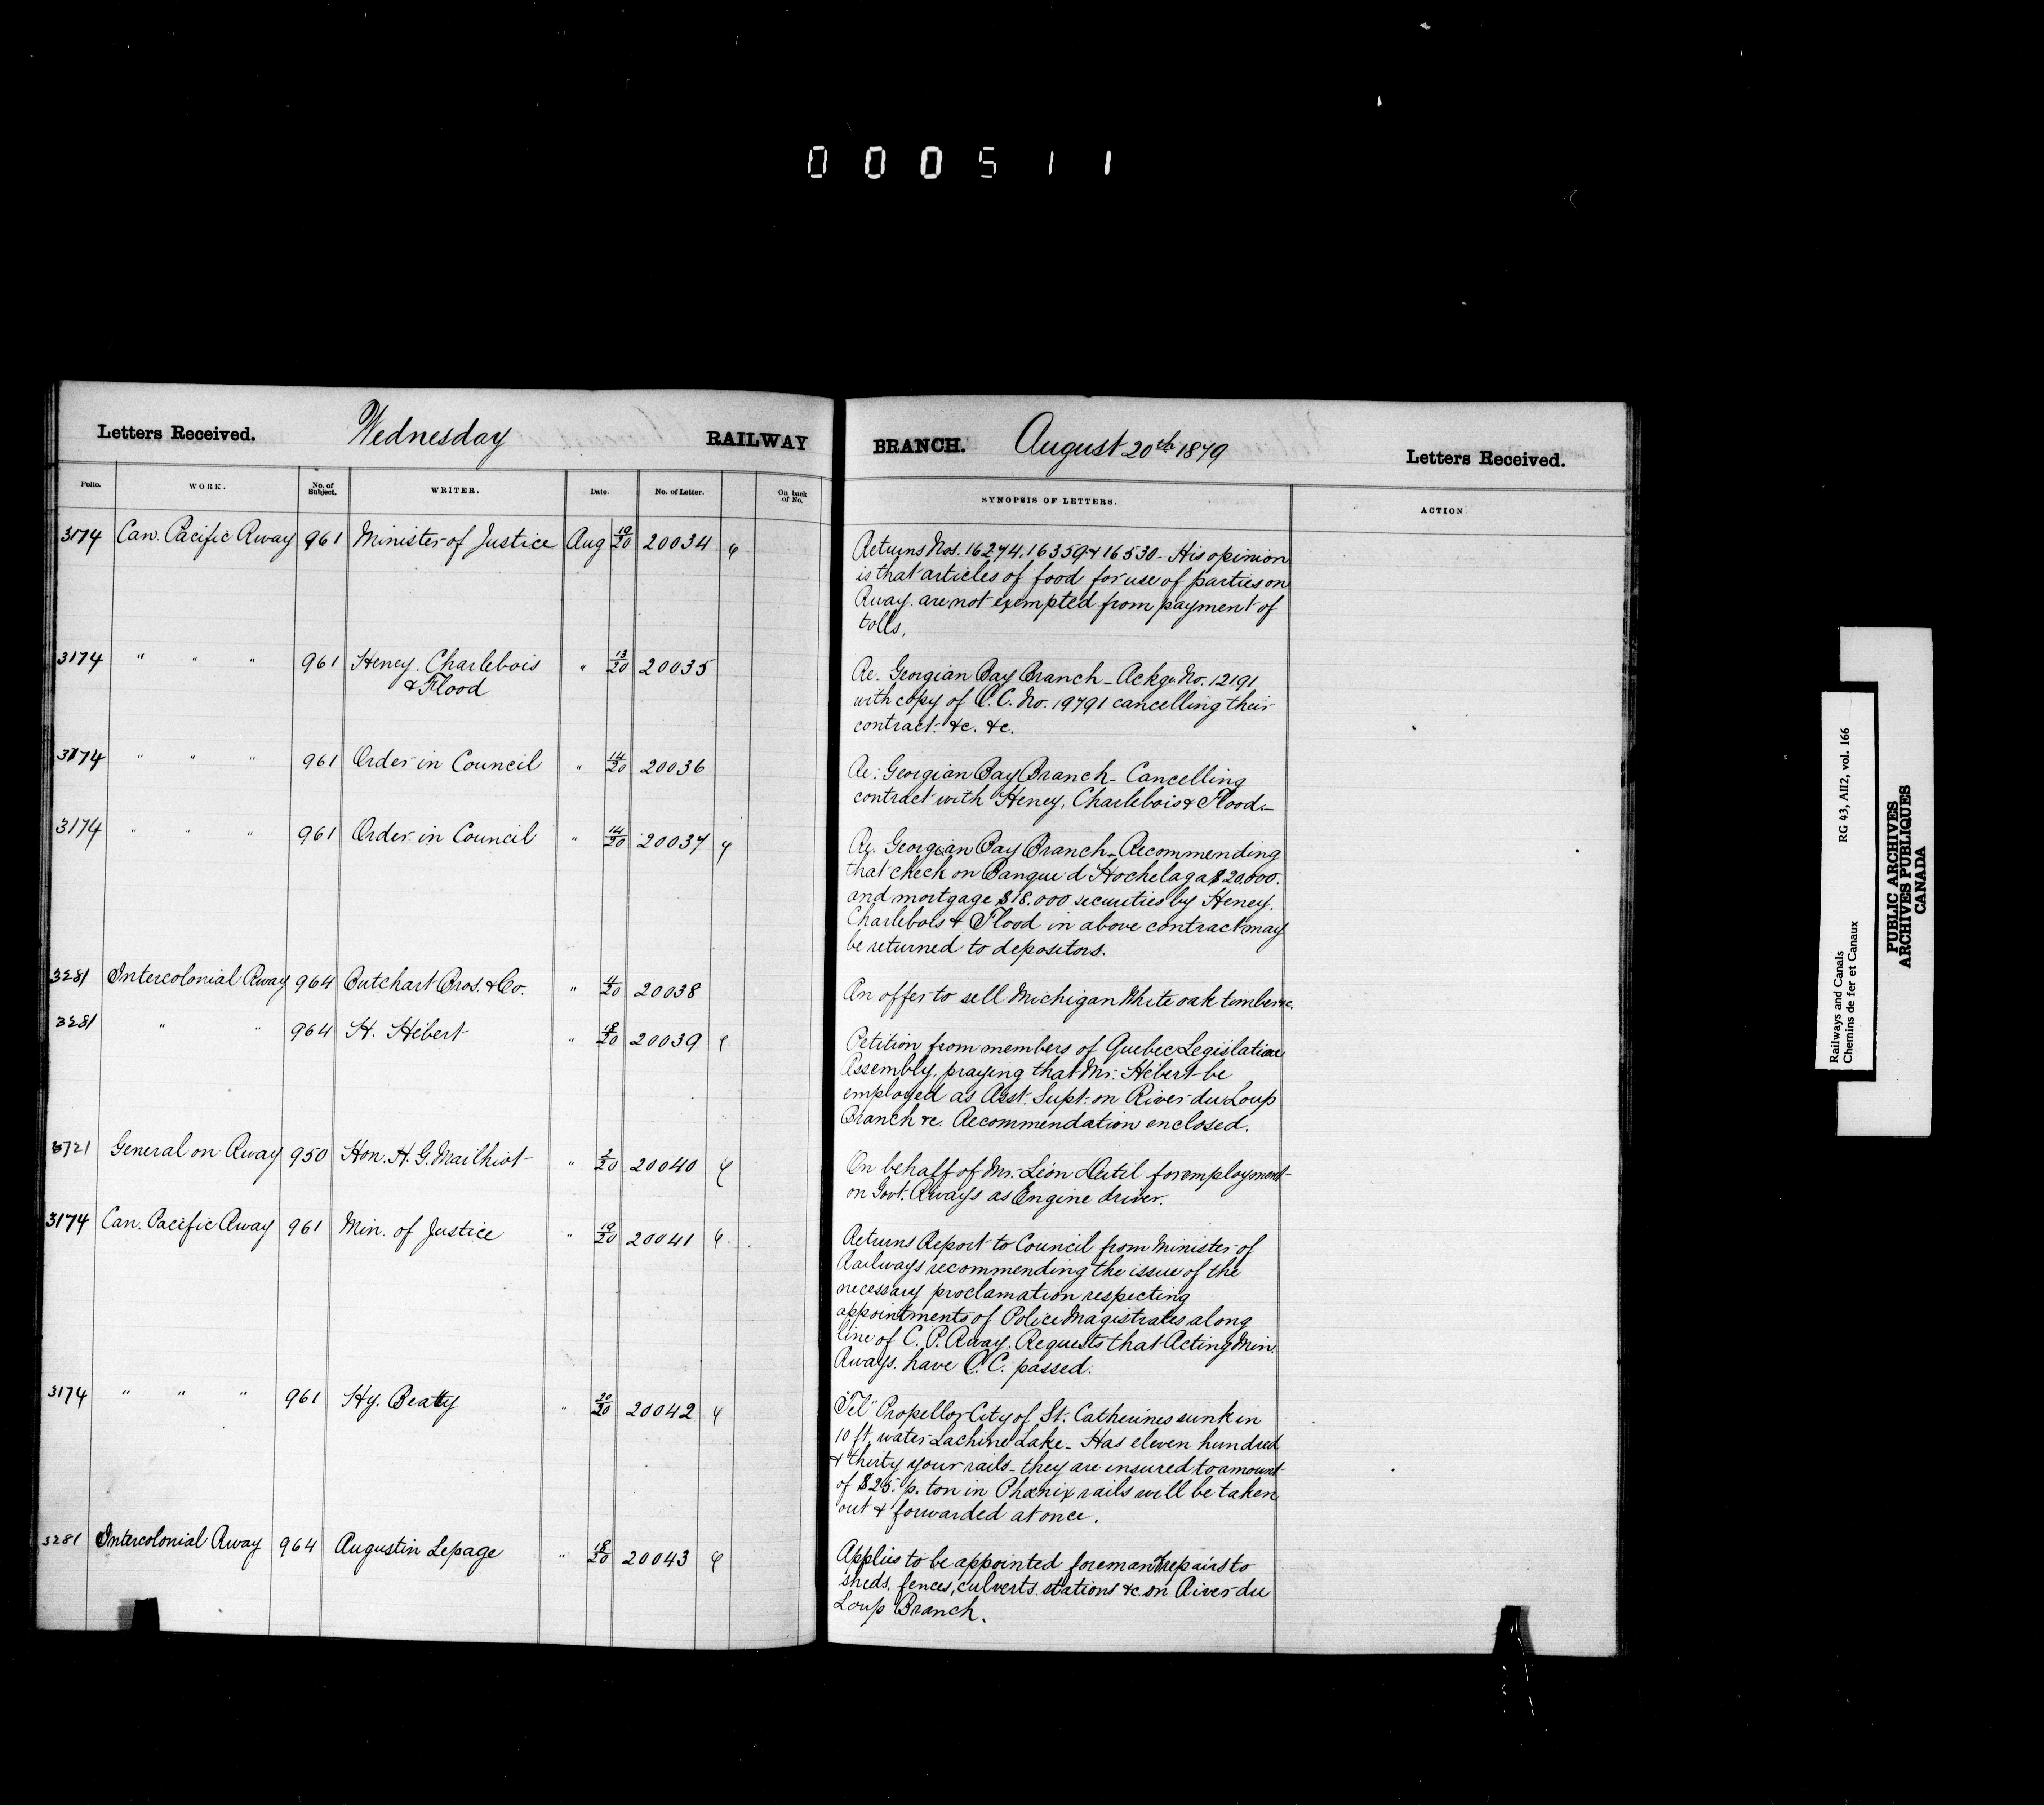 000511
Letters Received. Wednesday RAILWAY
BRANCH. August 20th 1879 Letters Received.
Folio. WORK. No. of Subject. WRITER. Date. No. of Letter. On back of No.
SYNOPSIS OF LETTERS. ACTION.
3174 Can. Pacific Rway 961 Minister of Justice Aug 19/20 20034
Returns Nos. 16274, 16359 & 16530 - His opinion
is that articles of food for use of parties on
Rway. are not exempted from payment of
tolls.
3174 " " " 961 Heney, Charlebois & Flood " 13/20 20035
Re. Georgian Bay Branch - Ackgs No. 12191
with copy of O.C. No. 19791 cancelling their
contract. &c. &c.
3174 " " " 961 Order in Council " 14/20 20036
Re: Georgian Bay Branch - Cancelling
contract with Heney, Charlebois & Flood. -
3174 " " " 961 Order in Council " 14/20 20037
Re. Georgian Bay Branch - Recommending
that check on Banque d'Hochelaga $20,000.
and mortgage $18.000 securities by Heney.
Charlebois & Flood in above contract may
be returned to depositors.
3281 Intercolonial Rway 964 Butchart Bros. & Co. " 20038
An offer to sell Michigan White oak timber &c.
3281 " " 964 H. Hébert " 18/20 20039
Petition from members of Quebec Legislative
Assembly, praying that Mr. Hébert be
employed as Asst. Supt. on River du Loup
Branch &c. Recommendation enclosed.
3721 General on Rway 950 Hon. H. G. Mailhiot " 2/20 20040
On behalf of Mr. Léon Dutil for employment
on Govt. Rways as Engine driver.
3174 Can. Pacific Rway 961 Min. of Justice " 19/20 20041
Returns Report to Council from Minister of
Railways recommending the issue of the
necessary proclamation respecting
appointments of Police Magistrates along
line of C. P. Rway. Requests that Acting Min.
Rways. have O.C. passed.
3174 " " " 961 Hy. Beatty " 20/20 20042
"Tel" Propellor City of St. Catherines sunk in
10 ft. water Lachine Lake - Has eleven hundred
& thirty your rails - they are insured to amount
of $25. p. ton in Phœnix rails will be taken
out & forwarded at once.
3281 Intercolonial Rway 964 Augustin Lepage " 18/20 20043
Applies to be appointed foreman repairs to
sheds, fences, culverts, stations &c. on River du
Loup Branch.
Railways and Canals RG 43, AII2, vol. 166
Chemins de fer et Canaux
PUBLIC ARCHIVES
ARCHIVES PUBLIQUES
CANADA